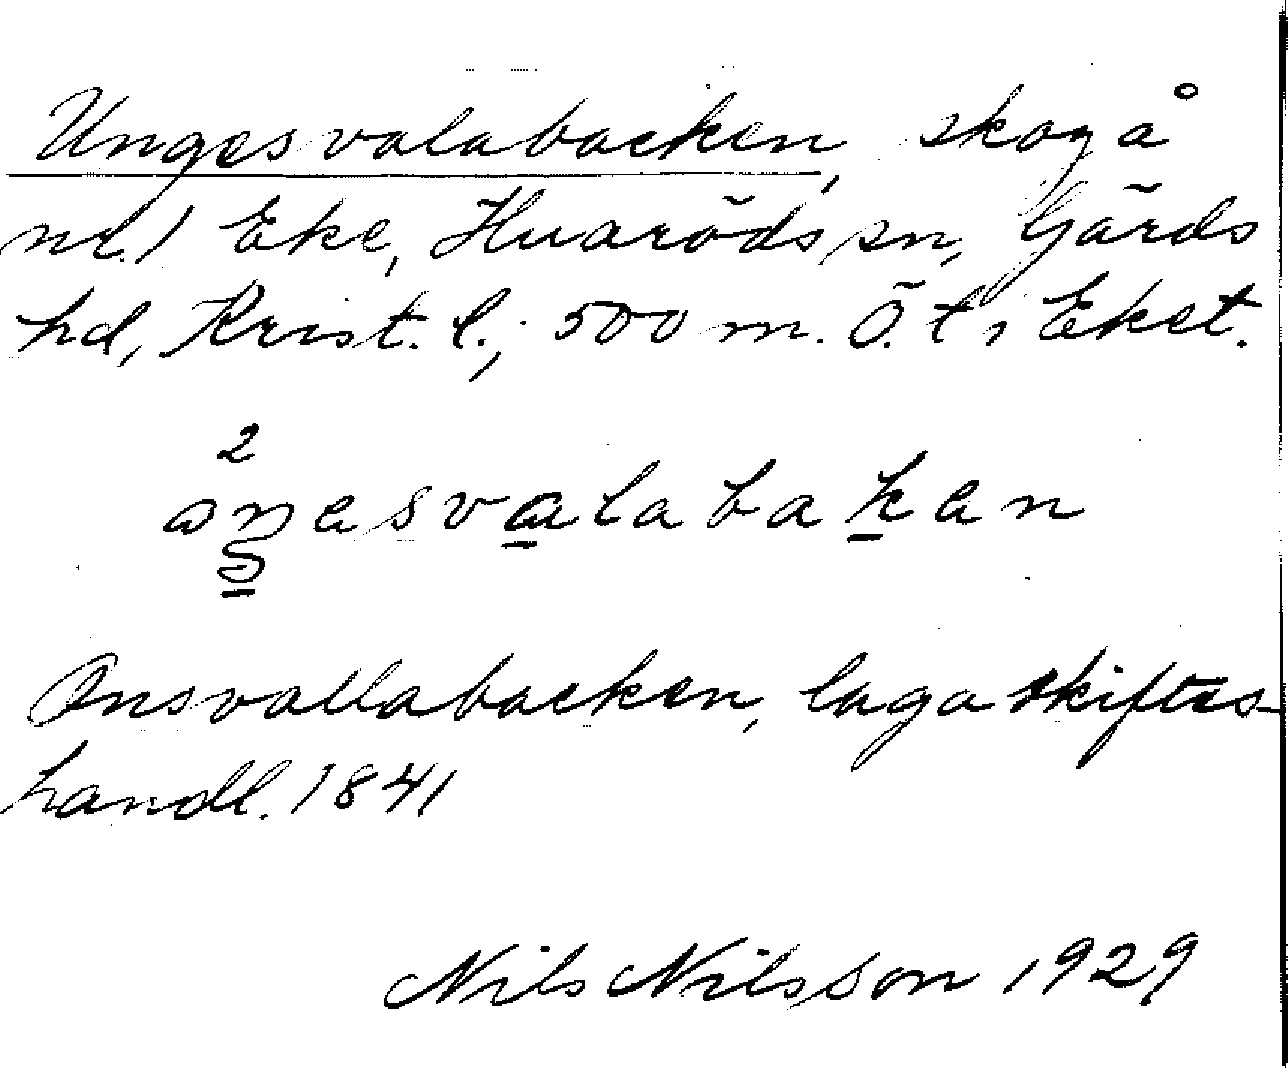 Ungesvalabacken, skog å
nr. 1 Eke, Huaröds sn, Gärds
hd, Krist. l.; 500 m. Ö. t. Ekst.
2
aŋesvalabaken
Onsvallabacken, laga skiftes-
handl. 1841
Nils Nilsson 1929